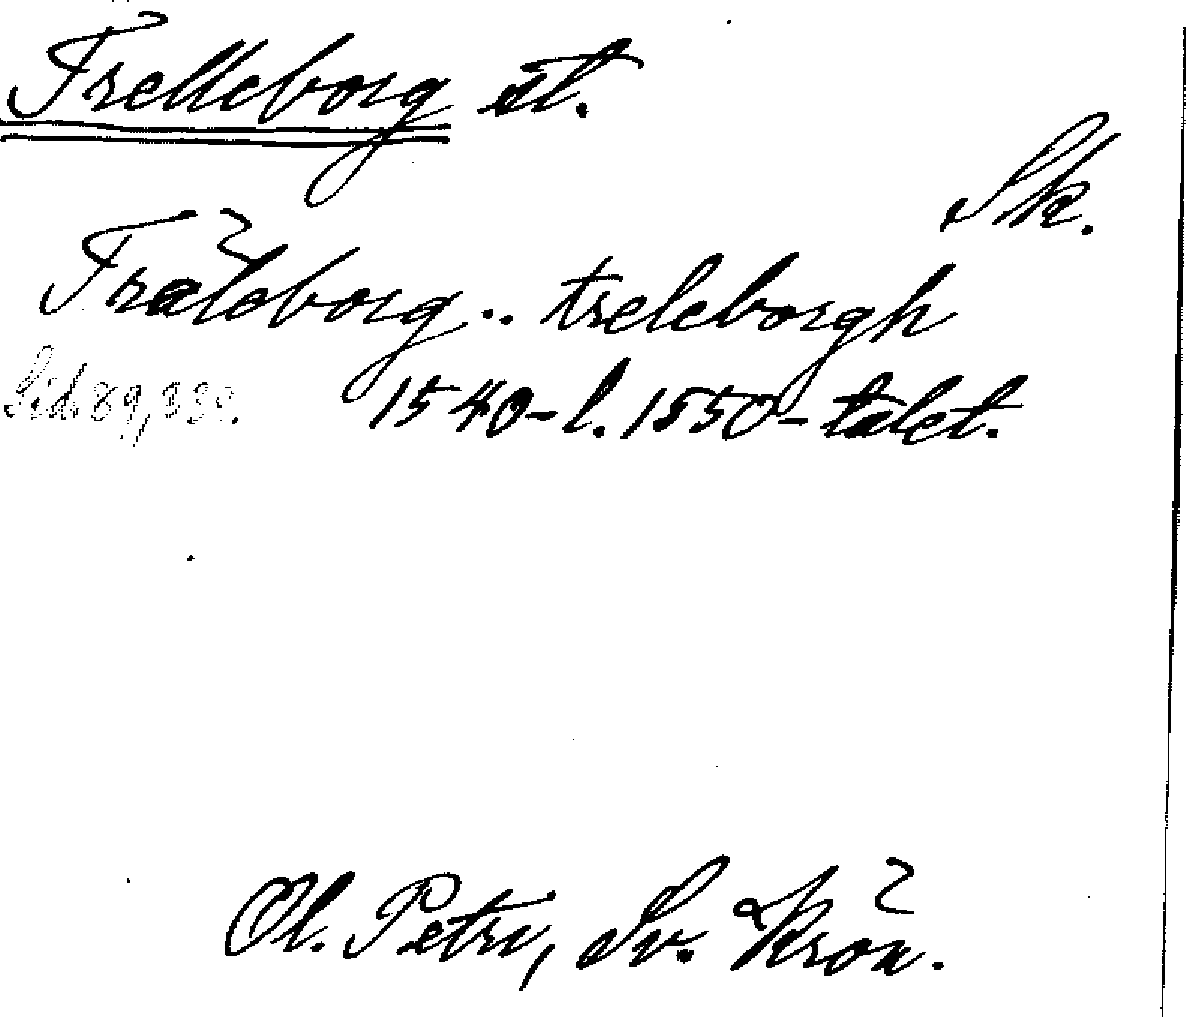 Trelleborg st.
Sk.
Träleborg.. treleborgh
Sid. 89, 330. 1540- l. 1550-talet.
Ol. Petri, Sv. Krön.